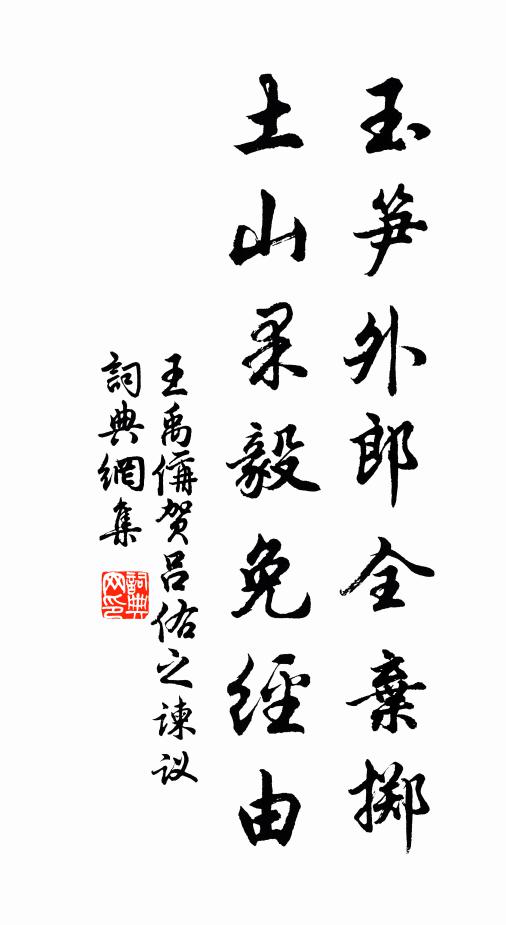 玉笋外郎全棄擲
土山果毅免經由
王禹偁賀吕佑之諫议
詞典網集
詞典网印